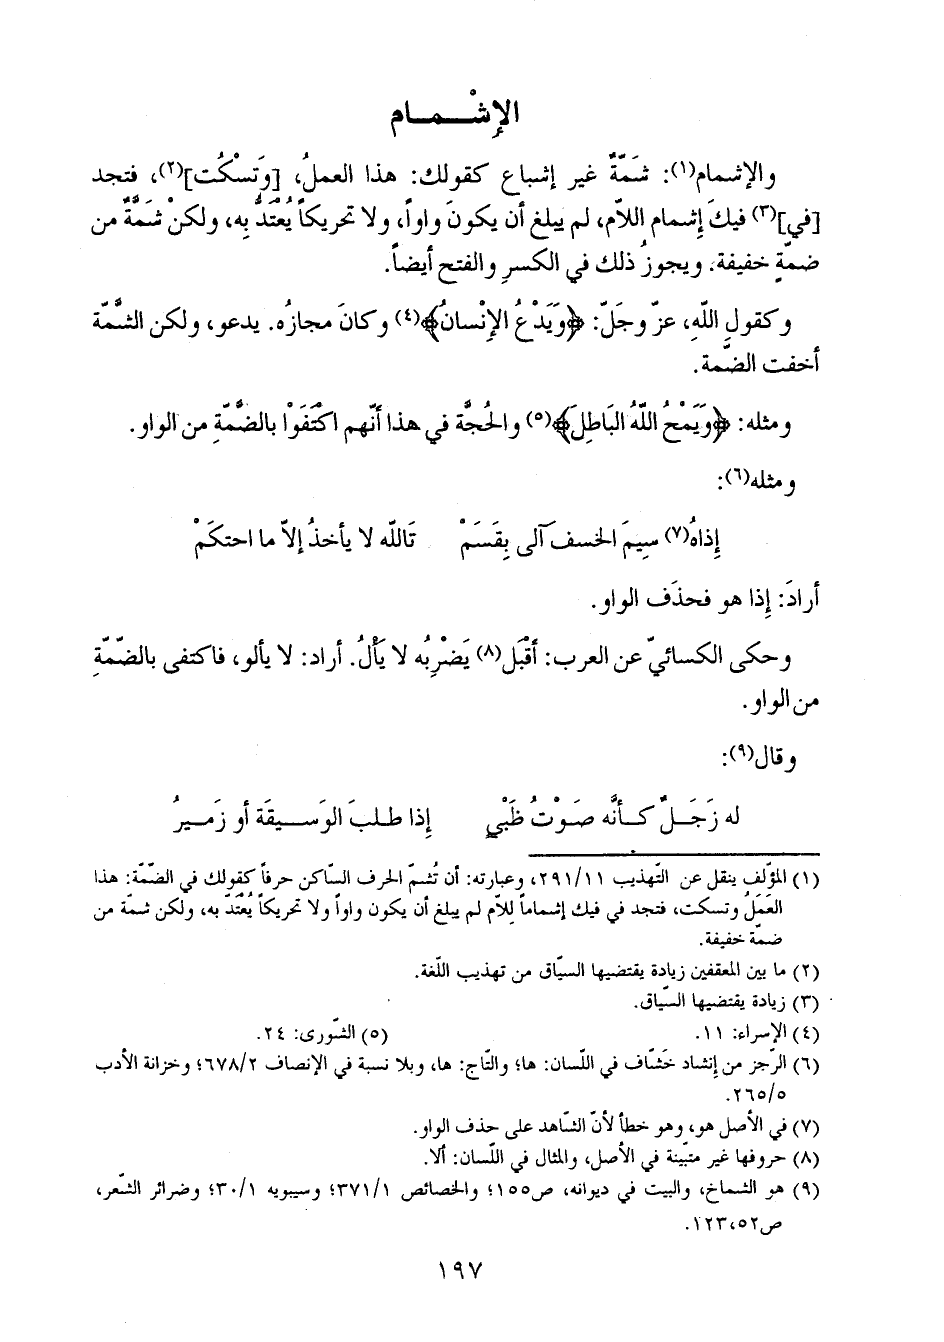 الإشْـــمـــام
والإشمام(١): شمَّةٌ غير إشباع كقولك: هذا العملُ، [وَتسْكُت](٢)، فتجد
[في](٣) فيكَ إشمام اللاّم، لم يبلغ أن يكونَ واواً، ولا تحريكاً يُعْتَدُّ به، ولكنْ شَمَّةٌ من
ضمّةٍ خفيفة. ويجوزُ ذلك في الكسرِ والفتح أيضاً.
وكقولِ اللّهِ، عزّ وجَلّ: ﴿وَيَدْعُ الإنْسانُ﴾(٤) وكانَ مجازُه. يدعو، ولكن الشمّة
أخفت الضمّة.
ومثله: ﴿وَيَمْحُ اللّهُ البَاطِلَ﴾(٥) والحُجَّة في هذا أنّهم اكْتَفَوْا بالضُمَّةِ من الواو.
ومثله(٦):
إِذاهُ(٧) سِيمَ الخسفَ آلى بِقَسَمْ    تَاللّه لا يأخذُ إلاّ ما احتكَمْ
أرادَ: إِذا هو فحذَف الواو.
وحكى الكسائيّ عن العرب: أقْبَل(٨) يَضْرِبُه لا يَأْلُ. أراد: لا يألو، فاكتفى بالضّمّةِ
من الواو.
وقال(٩):
له زَجَـــلٌ كـــأنَّه صَـوْتُ ظَبْيٍ    إِذا طـلـبَ الوَسـيـقَة أو زَمـيـرُ
(١) المؤلّف ينقل عن التّهذيب ٢٩١/١١، وعبارته: أن تُشمّ الحرف السّاكن حرفاً كقولك في الضمّة: هذا
العَمَلُ وتسكت، فتجد في فيك إشماماً لِلاّم لم يبلغ أن يكون واواً ولا تحريكاً يُعْتَدّ به، ولكن شمّة من
ضمّة خفيفة.
(٢) ما بين المعقفين زيادة يقتضيها السيّاق من تهذيب اللّغة.
(٣) زيادة يقتضيها السيّاق.
(٤) الإسراء: ١١.    (٥) الشّورى: ٢٤.
(٦) الرّجز من إنشاد خَشّاف في اللّسان: ها؛ والتّاج: ها، وبلا نسبة في الإنصاف ٦٧٨/٢؛ وخزانة الأدب
٢٦٥/٥.
(٧) في الأصل هو، وهو خطأ لأنّ الشّاهد على حذف الواو.
(٨) حروفها غير متبّينة في الأصل، والمثال في اللّسان: ألا.
(٩) هو الشماخ، والبيت في ديوانه، ص١٥٥؛ والخصائص ٣٧١/١؛ وسيبويه ٣٠/١؛ وضرائر الشّعر،
ص٥٢،١٢٣.
١٩٧